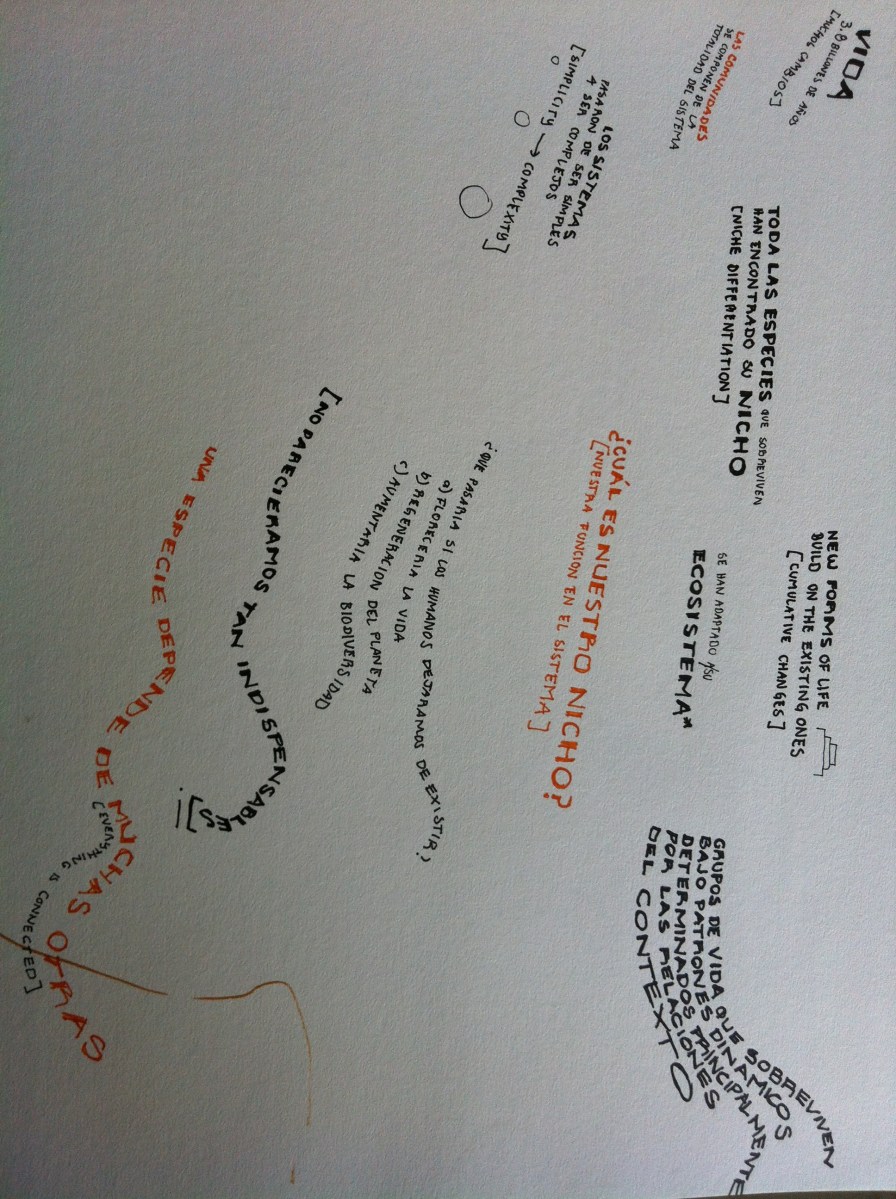 VIDA
3.8 BILLONES DE AÑOS
[MUCHOS CAMBIOS]
LAS COMUNIDADES
SE COMPONEN DE LA
TOTALIDAD DEL SISTEMA
LOS SISTEMAS
PASARON DE SER SIMPLES
A SER COMPLEJOS
[SIMPLICITY → COMPLEXITY]
TODA LAS ESPECIES QUE SOBREVIVEN
HAN ENCONTRADO SU NICHO
[NICHE DIFFERENTIATION]
NEW FORMS OF LIFE
BUILD ON THE EXISTING ONES
[CUMULATIVE CHANGES]
SE HAN ADAPTADO A/SU
ECOSISTEMA*
GRUPOS DE VIDA QUE SOBREVIVEN
BAJO PATRONES DINAMICOS
DETERMINADOS PRINCIPALMENTE
POR LAS RELACIONES
DEL CONTEXTO
¿CUÁL ES NUESTRO NICHO?
[NUESTRA FUNCION EN EL SISTEMA]
¿QUE PASARIA SI LOS HUMANOS DEJARAMOS DE EXISTIR?
a) FLORECERIA LA VIDA
b) REGENERACION DEL PLANETA
c) AUMENTARIA LA BIODIVERSIDAD
[NO PARECIERAMOS TAN INDISPENSABLES]
!!
UNA ESPECIE DEPENDE DE MUCHAS OTRAS
[EVERYTHING IS CONNECTED]